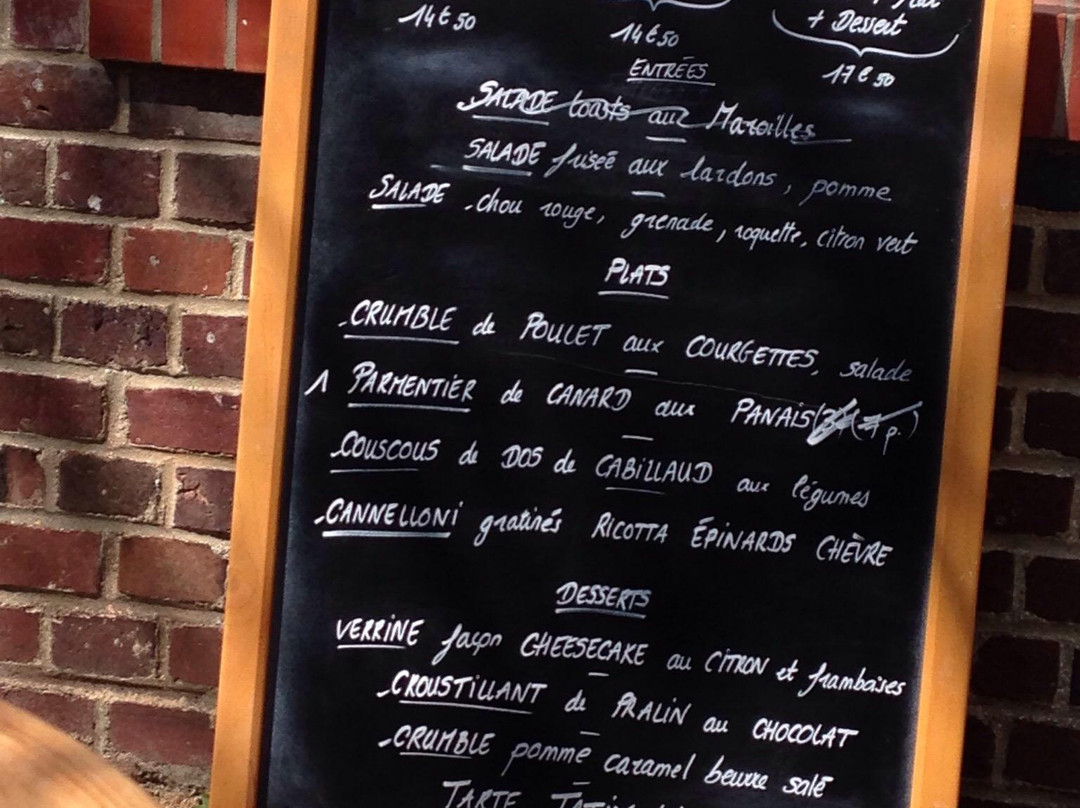 + Dessert
14€50
14€50
17€50
ENTRÉES
SALADE toasts aux Maroilles
SALADE frisée aux lardons, pomme
SALADE chou rouge, grenade, roquette, citron vert
PLATS
CRUMBLE de POULET aux COURGETTES, salade
1 PARMENTIER de CANARD aux PANAIS
COUSCOUS de DOS de CABILLAUD aux légumes
CANNELLONI gratinés RICOTTA ÉPINARDS CHÈVRE
DESSERTS
VERRINE façon CHEESECAKE au CITRON et framboises
CROUSTILLANT de PRALIN au CHOCOLAT
CRUMBLE pomme caramel beurre salé
TARTE TATIN